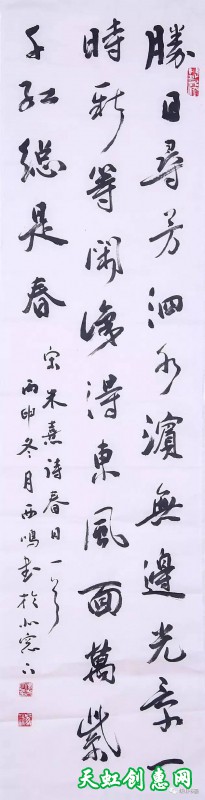 勝日尋芳泗水濱無邊光景一
時新等閑識得東風面萬紫
千紅總是春
宋朱熹詩春日一首
丙申冬月西鳴書於北窓下
天虹创惠网